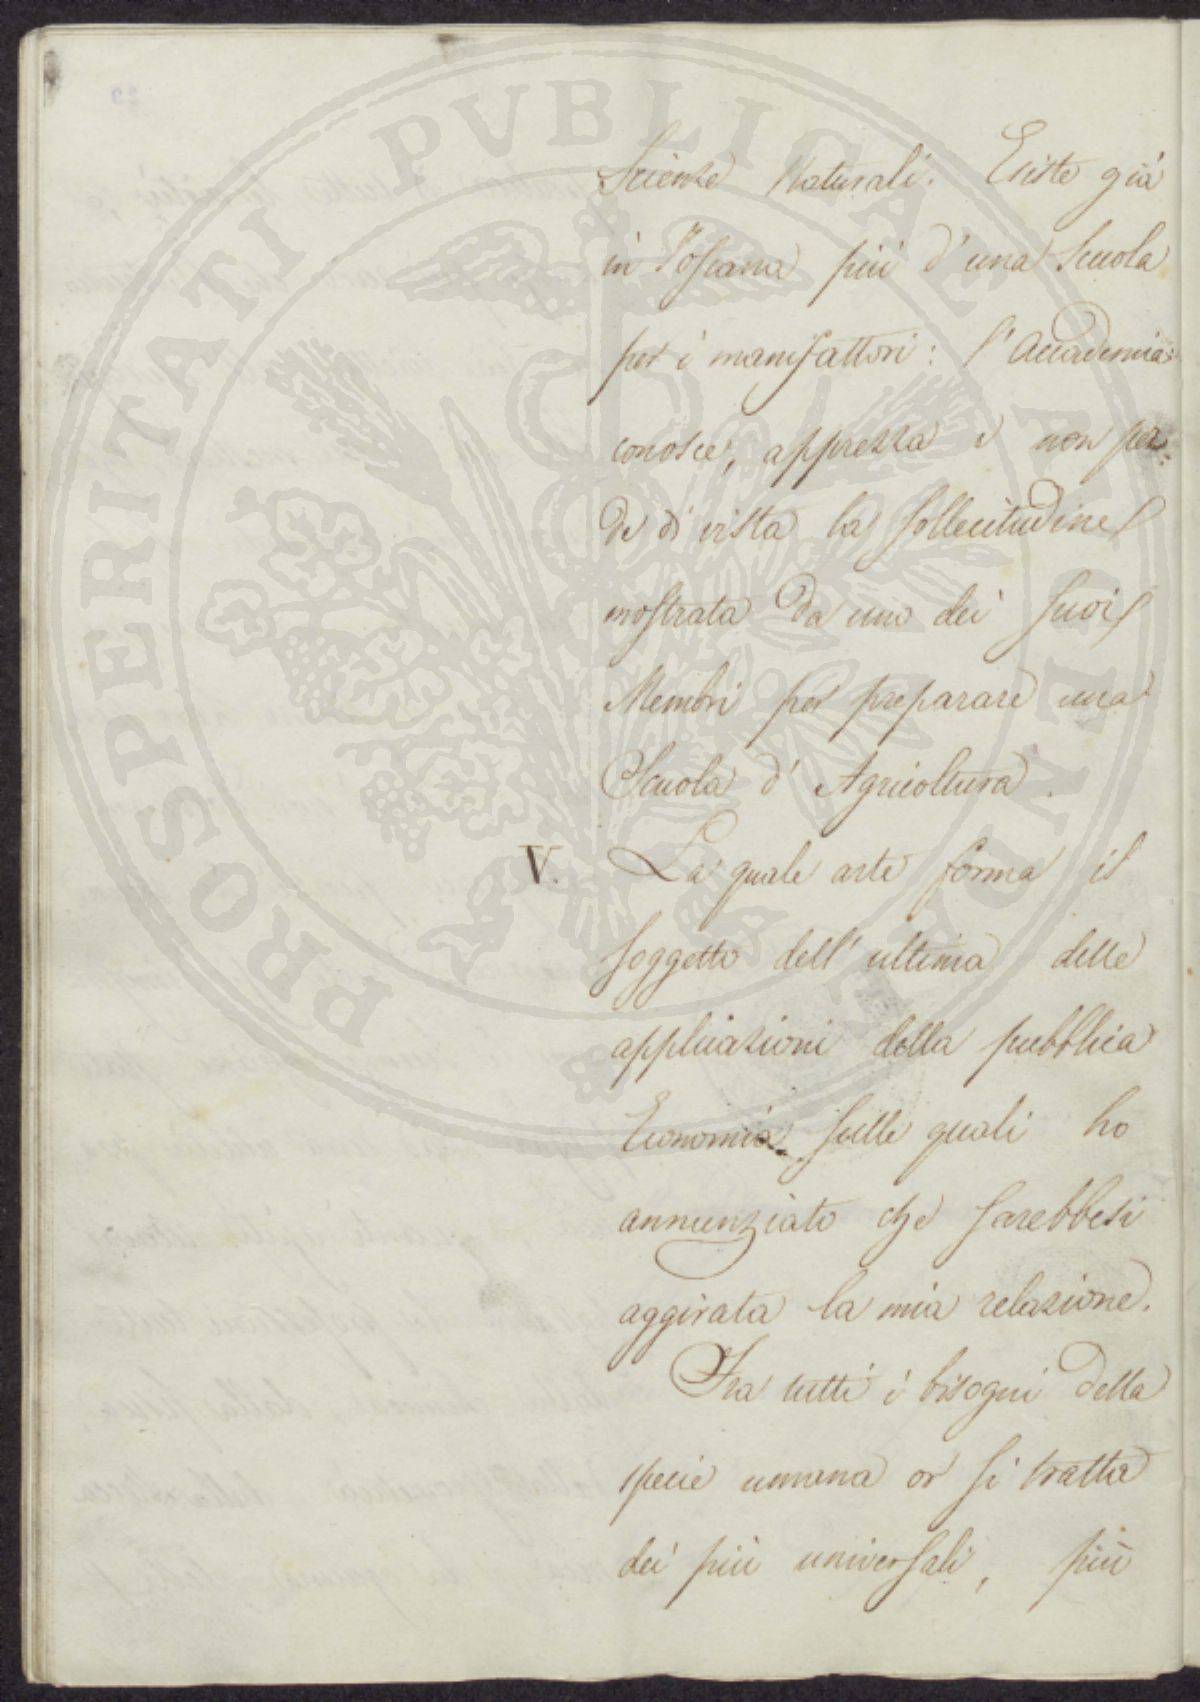 PROSPERITATI PVBLICAE AVGENDAE
Scienze Naturali. Esiste già
in Toscana più d'una Scuola
per i manifattori: l'Accademia
conosce, apprezza e non per=
de di vista la sollecitudine
mostrata da uno dei suoi
Membri per preparare una
Scuola d'Agricoltura.
V. La quale arte forma il
soggetto dell'ultima delle
applicazioni della pubblica
Economia sulle quali ho
annunziato che sarebbesi
aggirata la mia relazione.
Fra tutti i bisogni della
specie umana or si tratta
dei più universali, più